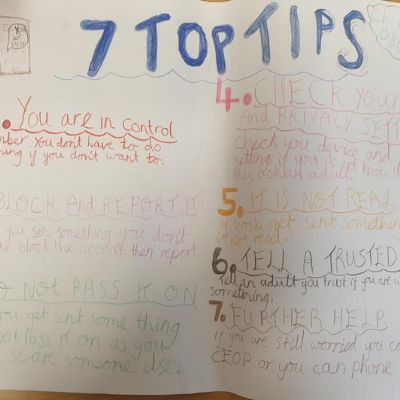 7 TOP TIPS
You are in control
You dont have to do
if you don't want to.
BLOCK And REPORT IT
you see something you don't
block the account then report
NOT PASS IT ON
you get sent some thing
pass it on as you
scare someone else.
4. CHECK Your
And PRIVACY
Check you device and
settings if you do not know
ask an adult.
5. IT IS NOT REAL
if you get sent something
not real.
6. TELL A TRUSTED
Tell an adult you trust if you are
something.
7. FURTHER HELP
if you are still worried you
CEOP or you can phone